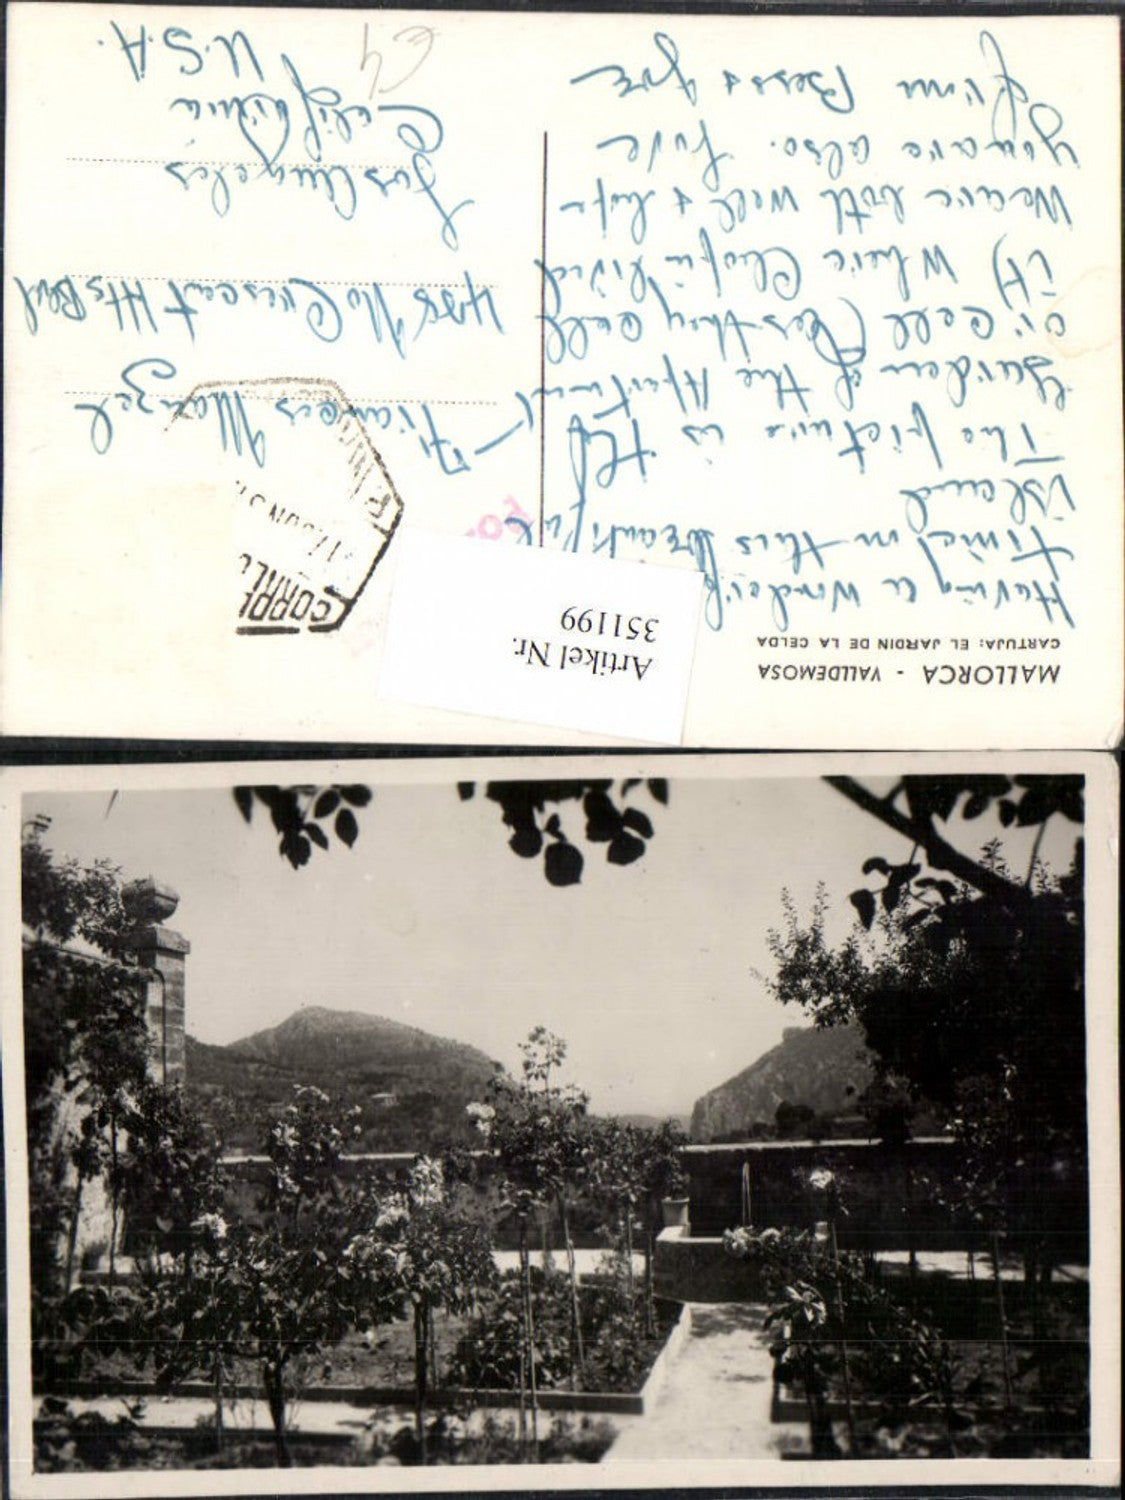 MALLORCA - VALLDEMOSA
CARTUJA: EL JARDIN DE LA CELDA
Having a Wonderful
time in this beautiful
island
The picture is the
Garden of the Apartment
or Cell (as they call
it) Where Chopin lived
We are both well & hope
you are also. Love
from Bess & Joe
Frances Mangel
435 No Crescent Hts Blvd
Los Angeles
California
U.S.A.
CORRE
JUN 5
Artikel Nr.
351199